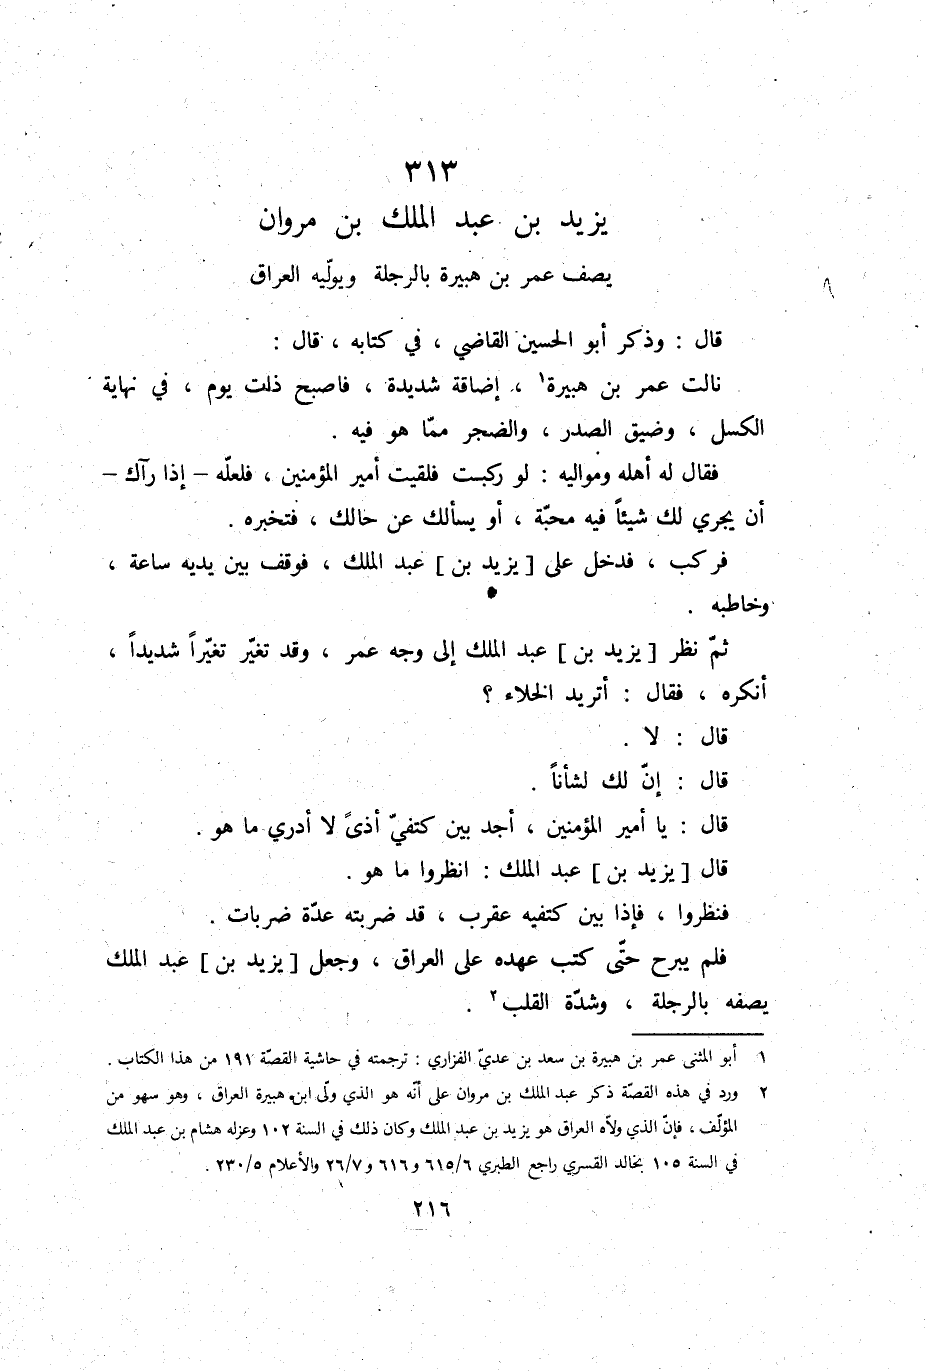 ٣١٣
يزيد بن عبد الملك بن مروان
يصف عمر بن هبيرة بالرجلة ويولّيه العراق
قال : وذكر أبو الحسين القاضي ، في كتابه ، قال :
نالت عمر بن هبيرة١ ، إضاقة شديدة ، فاصبح ذات يوم ، في نهاية
الكسل ، وضيق الصدر ، والضجر ممّا هو فيه .
فقال له أهله ومواليه : لو ركبت فلقيت أمير المؤمنين ، فلعلّه – إذا رآك –
أن يجري لك شيئاً فيه محبّة ، أو يسألك عن حالك ، فتخبره .
فركب ، فدخل على [ يزيد بن ] عبد الملك ، فوقف بين يديه ساعة ،
وخاطبه .
ثمّ نظر [ يزيد بن ] عبد الملك إلى وجه عمر ، وقد تغيّر تغيّراً شديداً ،
أنكره ، فقال : أتريد الخلاء ؟
قال : لا .
قال : إنّ لك لشأناً .
قال : يا أمير المؤمنين ، أجد بين كتفيّ أذىً لا أدري ما هو .
قال [ يزيد بن ] عبد الملك : انظروا ما هو .
فنظروا ، فإذا بين كتفيه عقرب ، قد ضربته عدّة ضربات .
فلم يبرح حتّى كتب عهده على العراق ، وجعل [ يزيد بن ] عبد الملك
يصفه بالرجلة ، وشدّة القلب٢ .
١ أبو المثنى عمر بن هبيرة بن سعد بن عديّ الفزاري : ترجمته في حاشية القصّة ١٩١ من هذا الكتاب .
٢ ورد في هذه القصّة ذكر عبد الملك بن مروان على أنّه هو الذي ولّى ابن هبيرة العراق ، وهو سهو من
المؤلّف ، فإنّ الذي ولاّه العراق هو يزيد بن عبد الملك وكان ذلك في السنة ١٠٢ وعزله هشام بن عبد الملك
في السنة ١٠٥ بخالد القسري راجع الطبري ٦١٥/٦ و ٦١٦ و ٢٦/٧ والأعلام ٢٣٠/٥ .
٢١٦